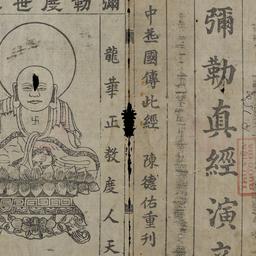 彌勒真經演
中華國傳此經 陳德佑重刊
龍華正教度人天
彌勒度世